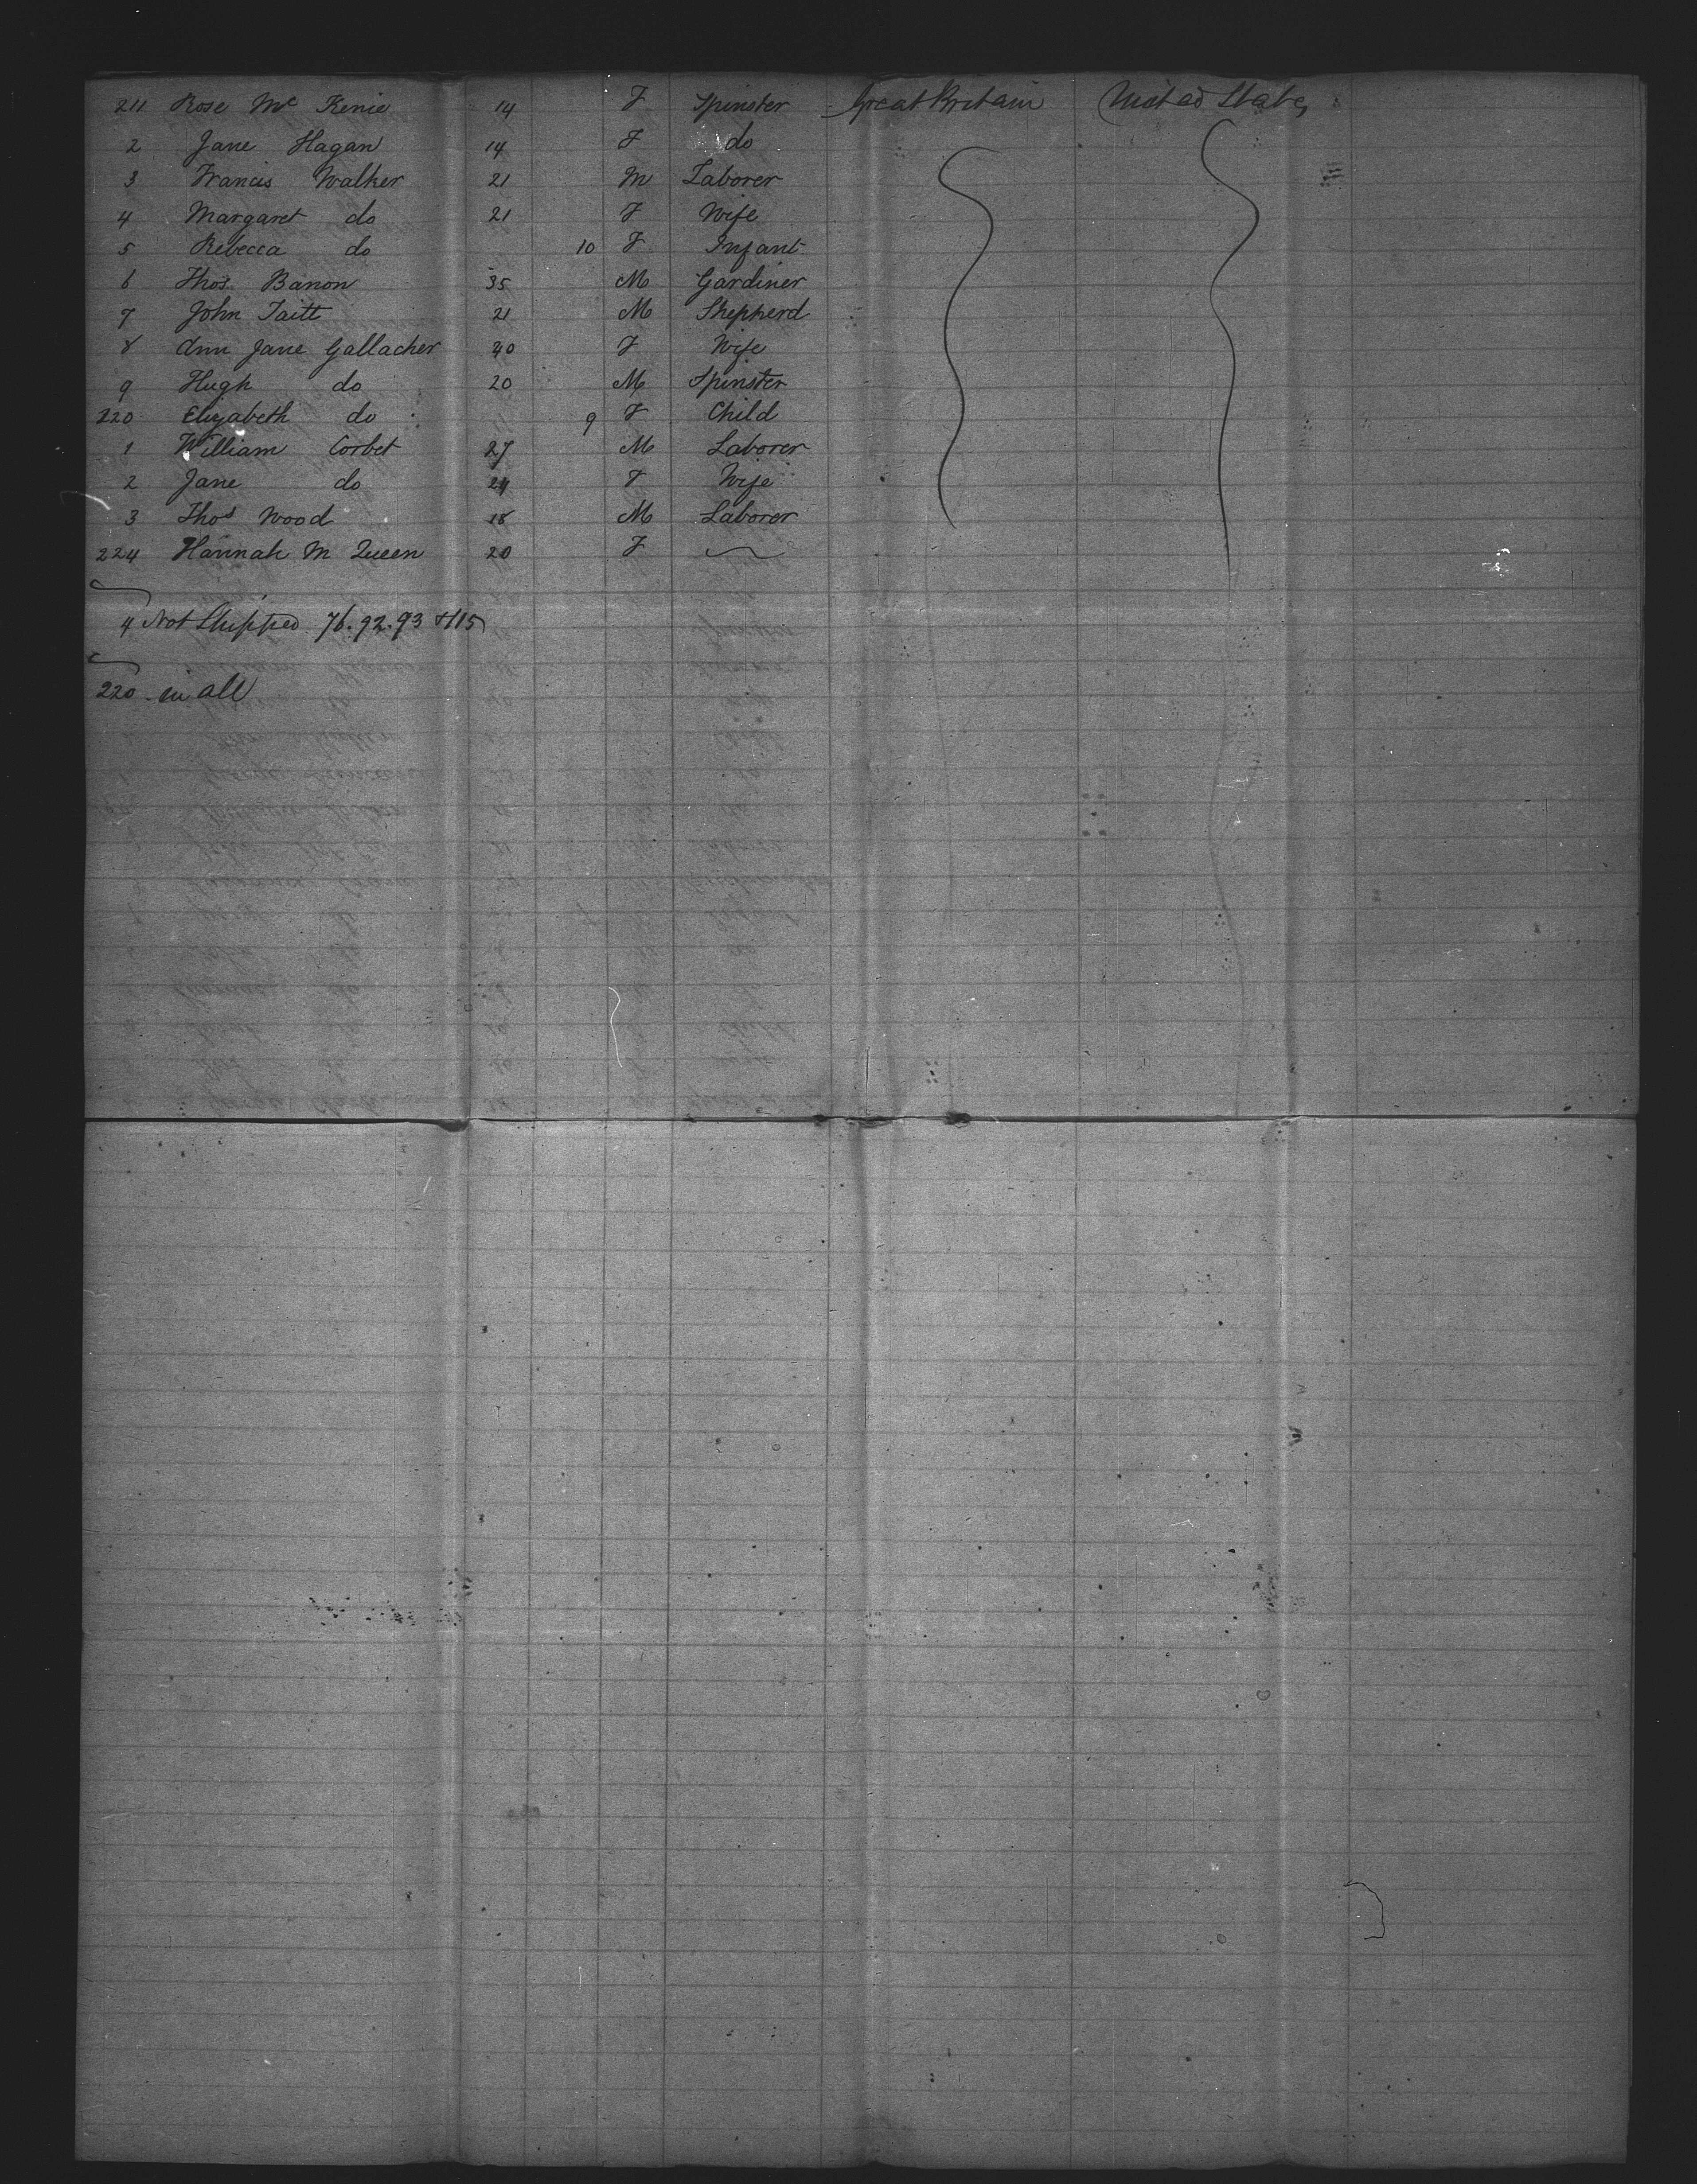 211 Rose Mc Kenie 14 F Spinster Great Britain United States
2 Jane Hagan 14 F do
3 Francis Walker 21 M Laborer
4 Margaret do 21 F Wife
5 Rebecca do 10 F Infant
6 Thos Banon 35 M Gardiner
7 John Taitt 21 M Shepherd
8 Ann Jane Gallacher 40 F Wife
9 Hugh do 20 M Spinster
220 Elizabeth do 9 F Child
1 William Corbet 27 M Laborer
2 Jane do 24 F Wife
3 Thos Wood 18 M Laborer
224 Hannah M Queen 20 F
4 Not Shipped 76.92.93 & 115
220 in all